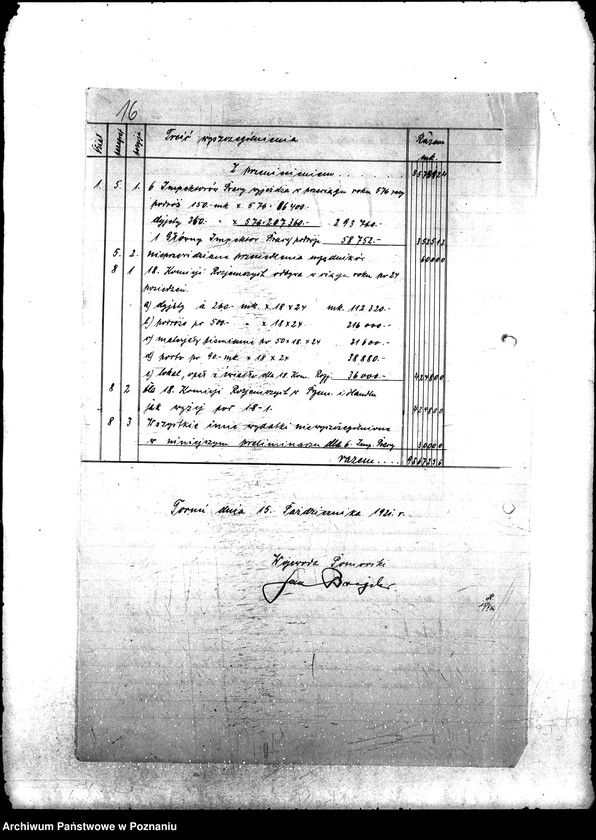 16
Dział paragraf pozycja Treść wyszczególnienia Razem
mk.
Z przeniesieniem . . . . 
1. 5. 1. 6 Inspektorów Pracy wyjeżdża w przeciągu roku 576 razy
podróż 150.- mk x 576. 86400.-
dyjety 360.- x 576. 207360.- 293760.-
1 Główny Inspektor Pracy podróże 58752.- 352512
5. 2. nieprzewidziane przesiedlenia urzędników 60000
8 1 18. Komisji Rozjemczych odbywa w ciągu roku po 24
posiedzeń.
a) dyjety à 260.- mk. x 18 x 24 mk. 112320.-
b) podróże po 500.- " x 18 x 24. 216000.-
c) materjały piśmienne po 50 x 18 x 24 21600.-
d) porto po 90.- mk. x 18 x 24 38880.-
e) lokal, opał i światło dla 18. Kom. Rozj. 36000.- 424800
8 2 dla 18. Komisji Rozjemczych w Przem. i Handlu
jak wyżej poz. 18-1. 424800
8 3 Wszystkie inne wydatki niewyszczególnione
w niniejszym preliminarzu dla 6. Insp. Pracy 30000
razem . . . .
Toruń dnia 15. Października 192 r.
Wojewoda Pomorski
Jan Brejski
Archiwum Państwowe w Poznaniu